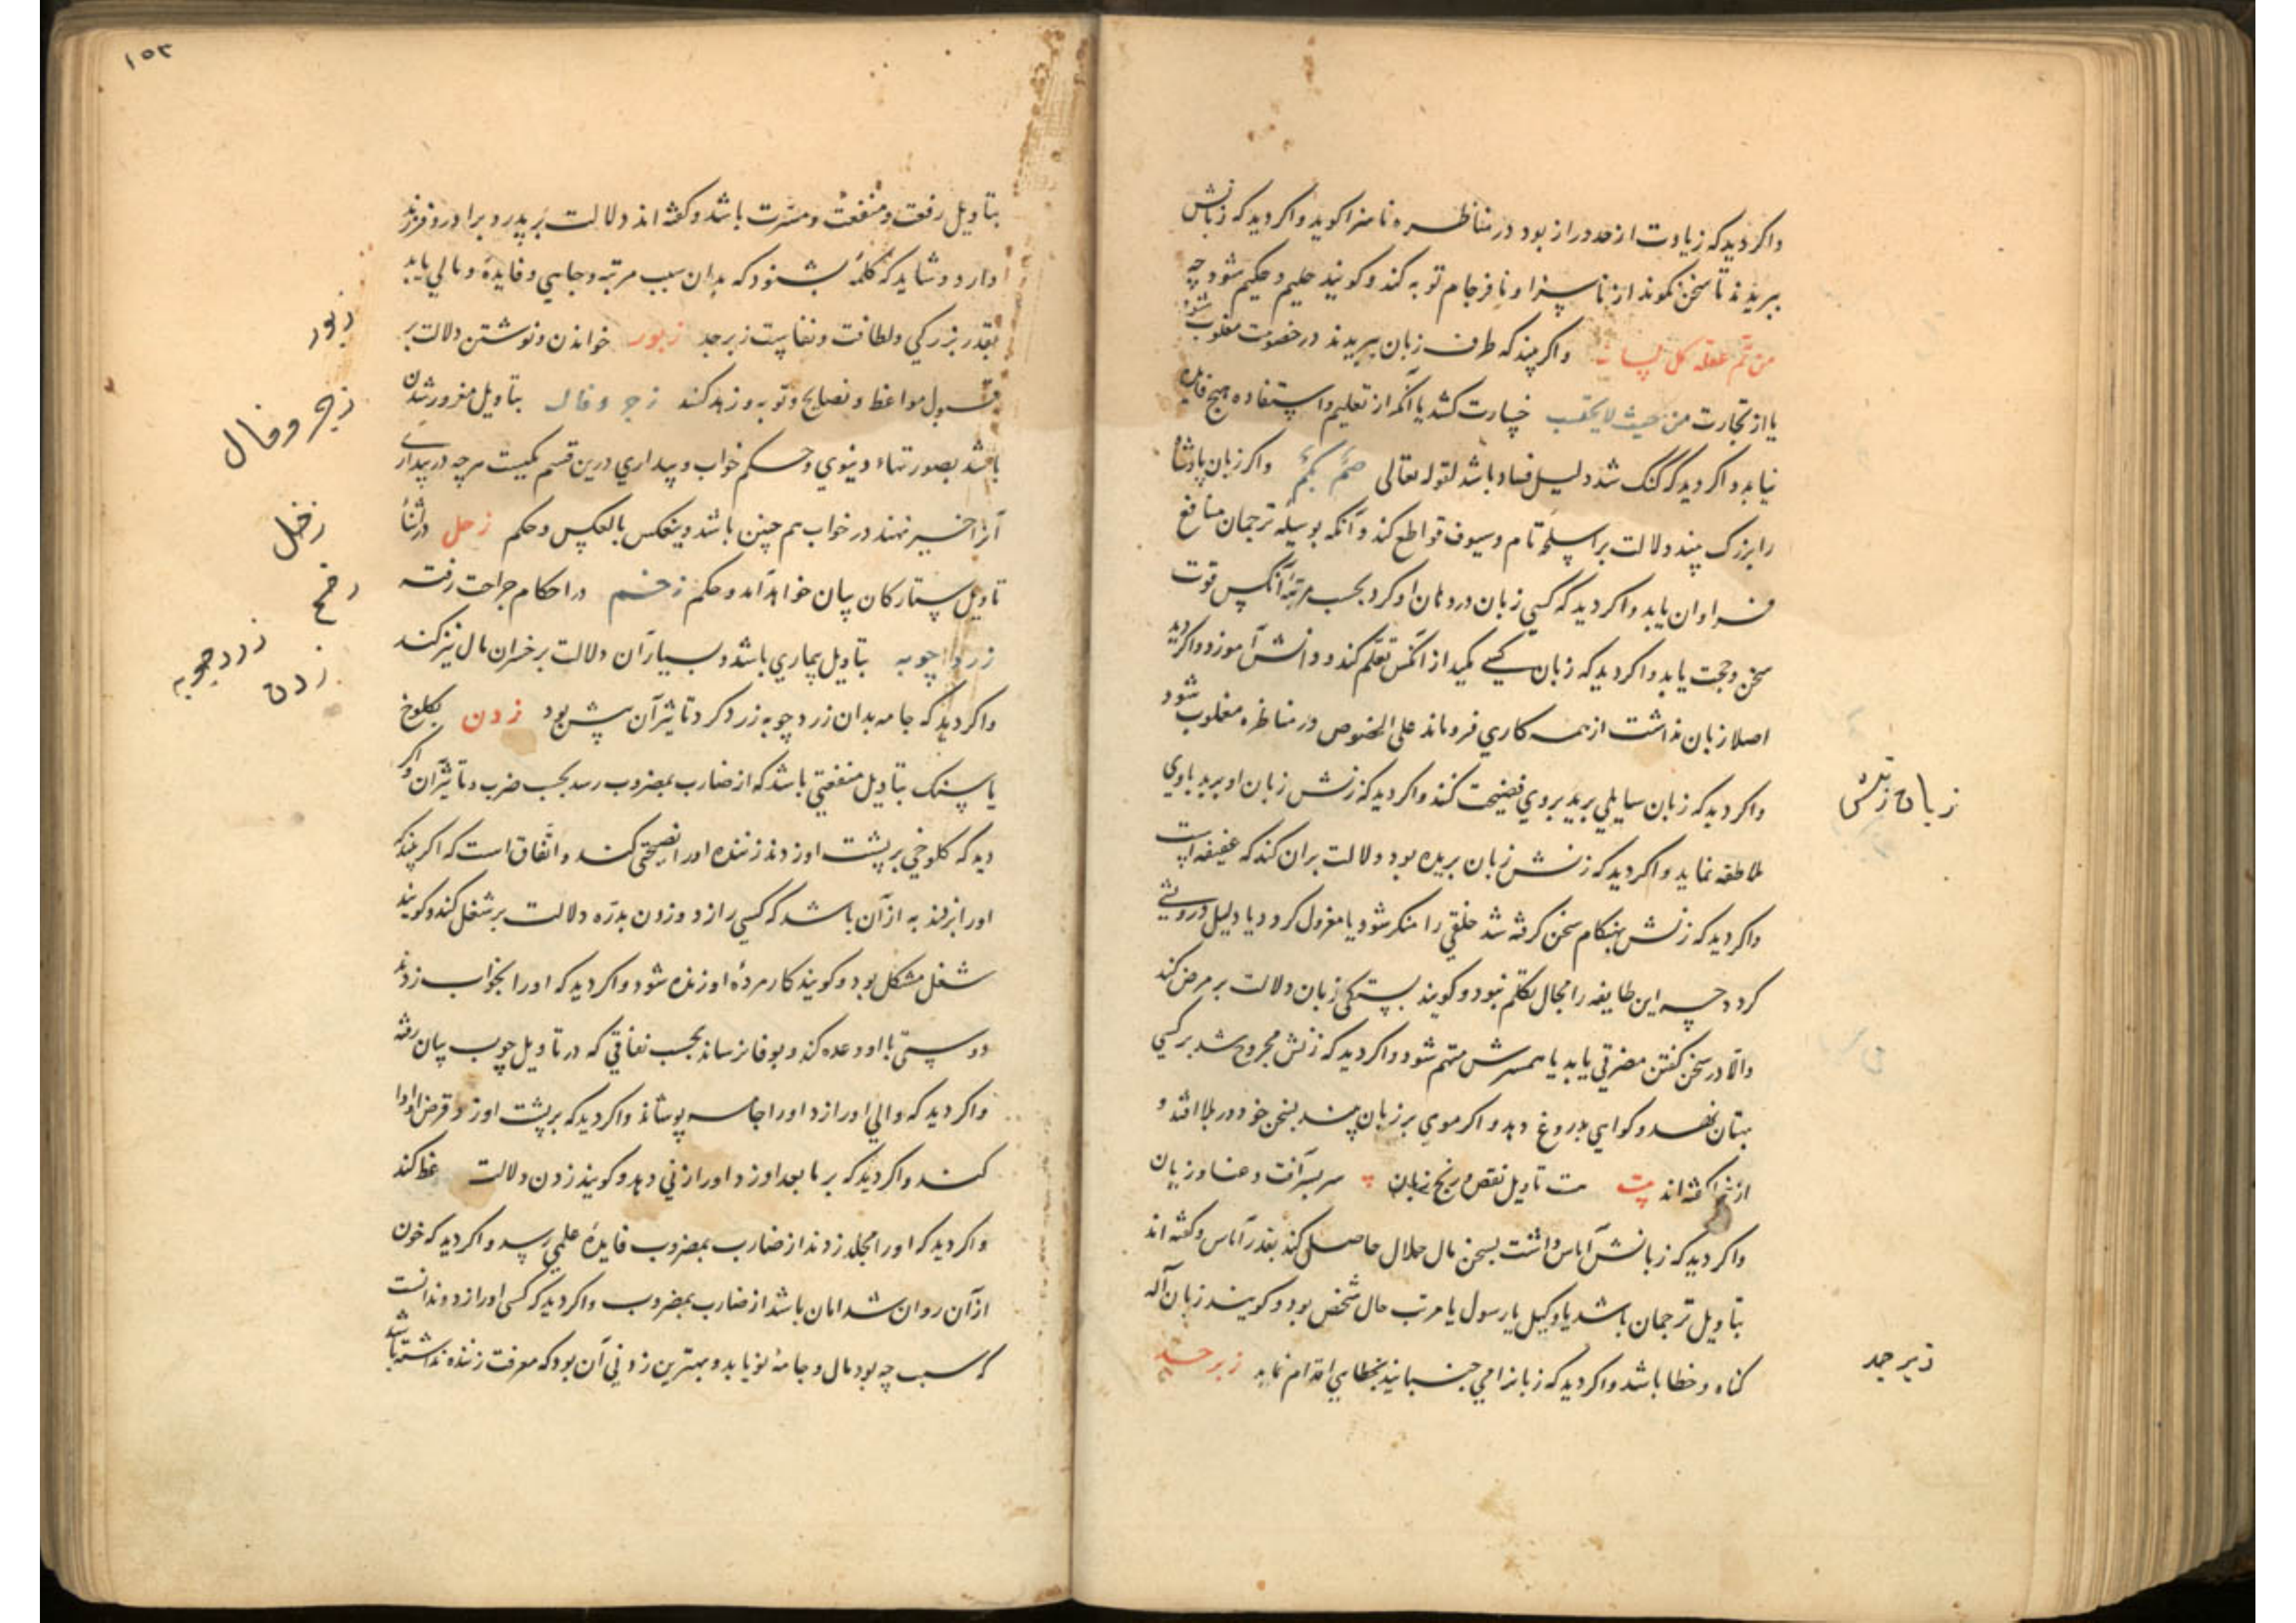 واکر دید که زیادت از حد دراز بود در مناظره ناسزا کوید و اکر دید که زبانش
ببریدند تا سخن نکوند از ناسزا و نافرجام توبه کند و کویند حلیم و حکیم شود چه
من تم عقله کل لسانه واکر بیند که طرف زبان ببریدند در خصومت مغلوب شود
یا از تجارت من حیث لا یحتسب خسارت کشد یا آنکه از تعلیم و استفاده هیچ فایده
نیابد و اکر دید که گنک شد دلیل فساد باشد لقوله تعالی صم بکم واکر زبان پادشاه
را بزرک بیند دلالت بر اسلحه تام و سیوف قواطع کند و آنکه بوسیله ترجمان منافع
فراوان یابد واکر دید که کسی زبان در دهان او کرد بحسب مرتبه آنکس قوت
سخن و حجت یابد و اکر دید که زبان کسی میکمد از آنکس تعلم کند و دانش آموزد و اکر دید
اصلا زبان نداشت از همه کاری فروماند علی الخصوص در مناظره مغلوب شود
واکر دید که زبان سایلی برید بروی فضیحت کند و اکر دید که زنش زبان او برید با وی
ملاطفه نماید و اکر دید که زنش زبان بریده بود دلالت بران کند که عفیفه است
زبان زنش
واکر دید که زنش بهنکام سخن کرفته شد خلقی را منکر شود یا معزول کردد یا دلیل درویشی
کردد چه این طایفه را مجال تکلم نبود و کویند بستکی زبان دلالت بر مرض کند
والا در سخن کفتن مضرتی یابد یا همسرش متهم شود و اکر دید که زنش مجروح شد بر کسی
بهتان نهد و کواهی بدروغ دهد و اکر موی بر زبان بیند بسخن خود در بلا افتد و
کفته اند ت تاویل نقص و رنج زبان سربسر آفت و عنا و زیان
واکر دید که زبانش آماس داشت بسخن مال حلال حاصل کند بقدر آماس و کفته اند
بتاویل ترجمان باشد یا وکیل یا رسول یا مرتب حال شخص بود و کویند زبان آله
کناه و خطا باشد و اکر دید که زبانرا می جنبانید بخطایی اقدام نماید زبرجد
زبرجد
۱۵۲
بتاویل رفعت و منفعت و مسرت باشد و کفته اند دلالت بر پدر و برادر و فرزند
دارد و شاید که کلمه بشنود که بدان سبب مرتبه و جاهی و فایده و مالی یابد
بقدر بزرکی و لطافت و نفاست زبرجد زبور خواندن و نوشتن دلالت بر
زبور
قبول مواعظ و نصایح و توبه و زهد کند زجر و فال بتاویل مغرور شدن
زجر و فال
باشد بصورتهاء دنیوی و حکم خواب و بیداری درین قسم یکیست هرچه در بیداری
آنرا خیر نهند در خواب هم چنین باشد و ینعکس بالعکس و حکم زحل در اثناء
زحل
تاویل ستارکان بیان خواهد آمد و حکم زخم در احکام جراحت رفته
زخم
زرد چوبه بتاویل بیماری باشد و بسیار آن دلالت بر خسران مال نیز کند
زردچوبه
واکر دید که جامه بدان زردچوبه زرد کرد تاثیر آن بیش بود زدن بکلوخ
زدن
یا سنک بتاویل منفعتی باشد که از ضارب بمضروب رسد بحسب ضرب و تاثیر آن و اکر
دید که کلوخی بر پشت او زدند زننده او را نصیحتی کند و اتفاق است که اکر بیند که
او را بزنند به از آن باشد که کسی را زد و زدن بدره دلالت بر شغل کند و کویند
شغل مشکل بود و کویند کار مرده او زنده شود و اکر دید که او را بچوب زدند
دوستی با او وعده کند و بوفا نرساند بحسب نفاقی که در تاویل چوب بیان رفته
واکر دید که والی او را زد او را جامه پوشاند و اکر دید که بر پشت او زد قرض او ادا
کند و اکر دید که بر ما بعد او زد او را زنی دهد و کویند زدن دلالت وعظ کند
واکر دید که او را مجلد زدند از ضارب بمضروب فایده علمی رسد و اکر دید که خون
از آن روان شد امان باشد از ضارب بمضروب واکر دید که کسی او را زد و ندانست
که سبب چه بود مال و جامه نو یابد و بهترین زدنی آن بود که معرفت زننده نداشته باشد